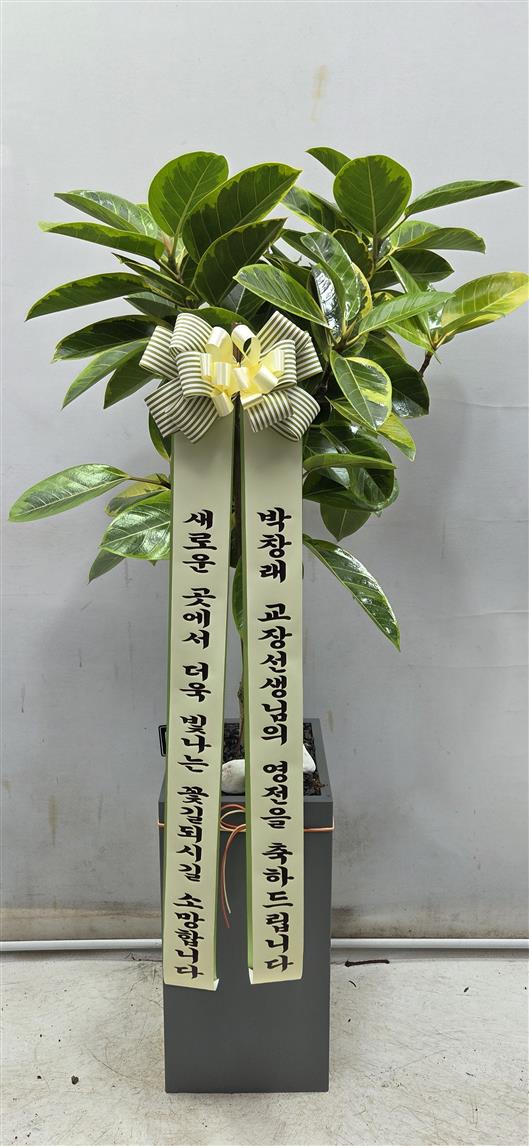 박창래 교장선생님의 영전을 축하드립니다
새로운 곳에서 더욱 빛나는 꽃길되시길 소망합니다